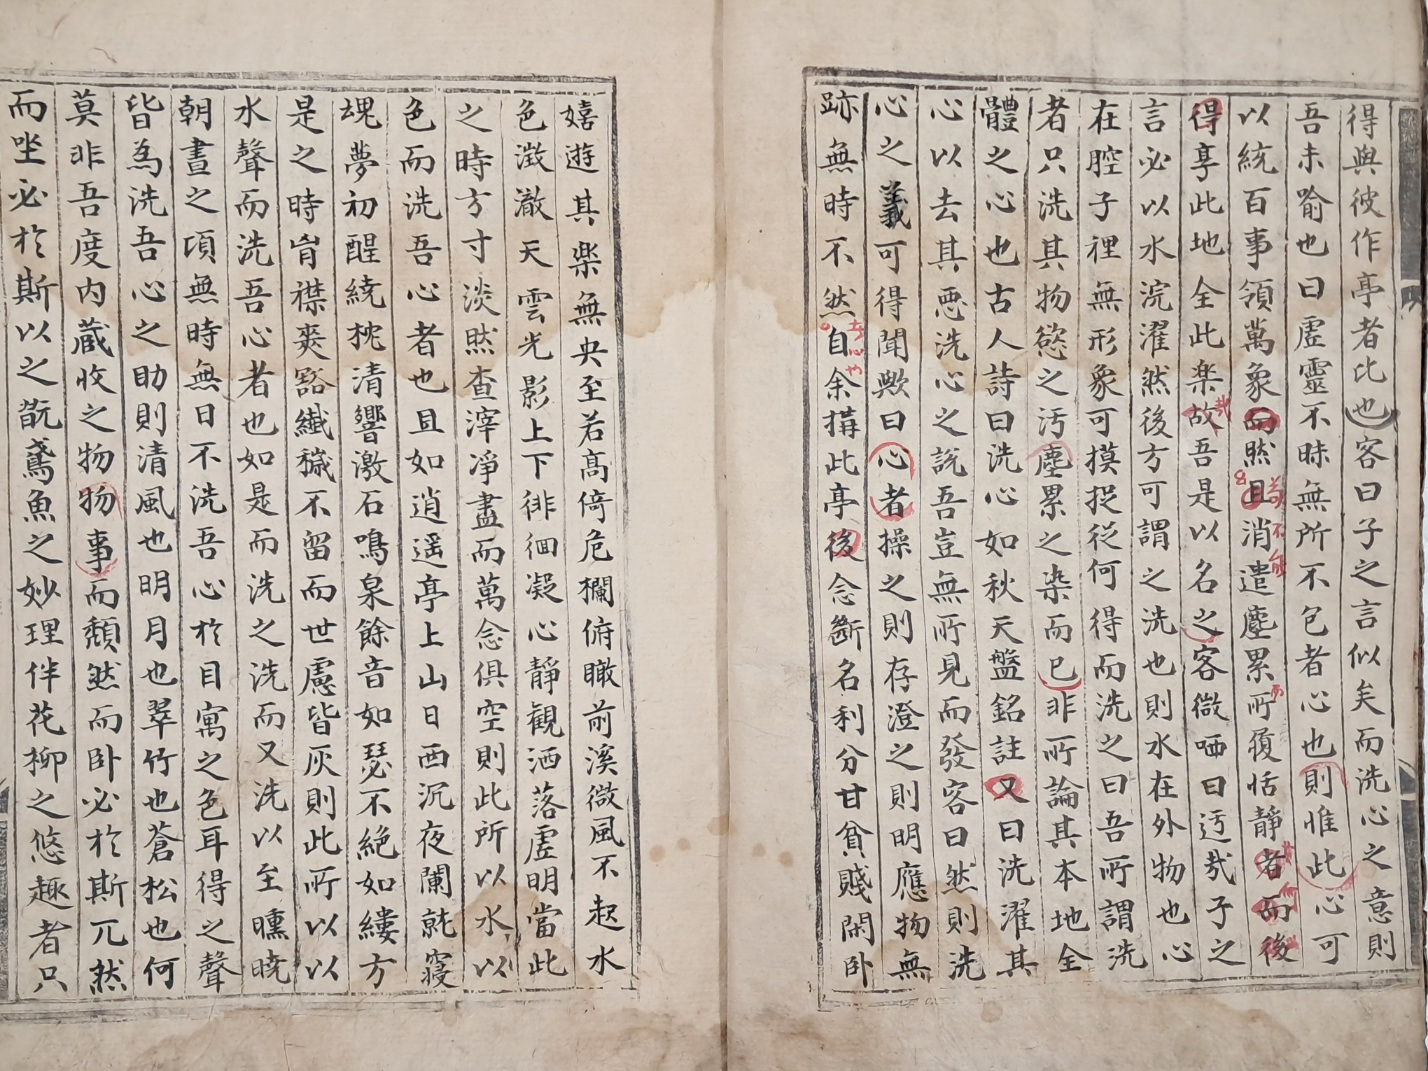 得與彼作亭者比也客曰子之言似矣而洗心之意則
吾未喩也曰虛靈不昧無所不包者心也則惟此心可
以統百事領萬象而然且消遣塵累所復恬靜者而後
豈不能
得享此地全此楽故吾是以名之客微哂曰迃㢤子之
言必以水浣濯然後方可謂之洗也則水在外物也心
在腔子裡無形象可摸捉従何得而洗之曰吾所謂洗
者只洗其物慾之汚塵累之染而已非所論其本地全
體之心也古人詩曰洗心如秋天盤銘註又曰洗濯其
心以去其惡洗心之説吾豈無所見而發客曰然則洗
心之義可得聞歟曰心者操之則存澄之則明應物無
跡無時不然自余搆此亭後念斷名利分甘貧賤閑卧
嬉遊其楽無央至若高倚危欄俯瞰前溪微風不起水
色澂澈天雲光影上下徘徊凝心靜観洒落虛明當此
之時方寸淡然查滓凈盡而萬念俱空則此所以水以
色而洗吾心者也且如逍遥亭上山日西沉夜闌就寢
魂夢初醒繞枕清響激石鳴泉餘音如瑟不絕如縷方
是之時胷襟爽豁纖穢不留而世慮皆灰則此所以以
水聲而洗吾心者也如是而洗之洗而又洗以至曛曉
朝晝之頃無時無日不洗吾心於目寓之色耳得之聲
皆為洗吾心之助則清風也明月也翠竹也蒼松也何
莫非吾度内蔵收之物物事而頽然而卧必於斯兀然
而坐必於斯以之翫鳶魚之妙理伴花柳之悠趣者只